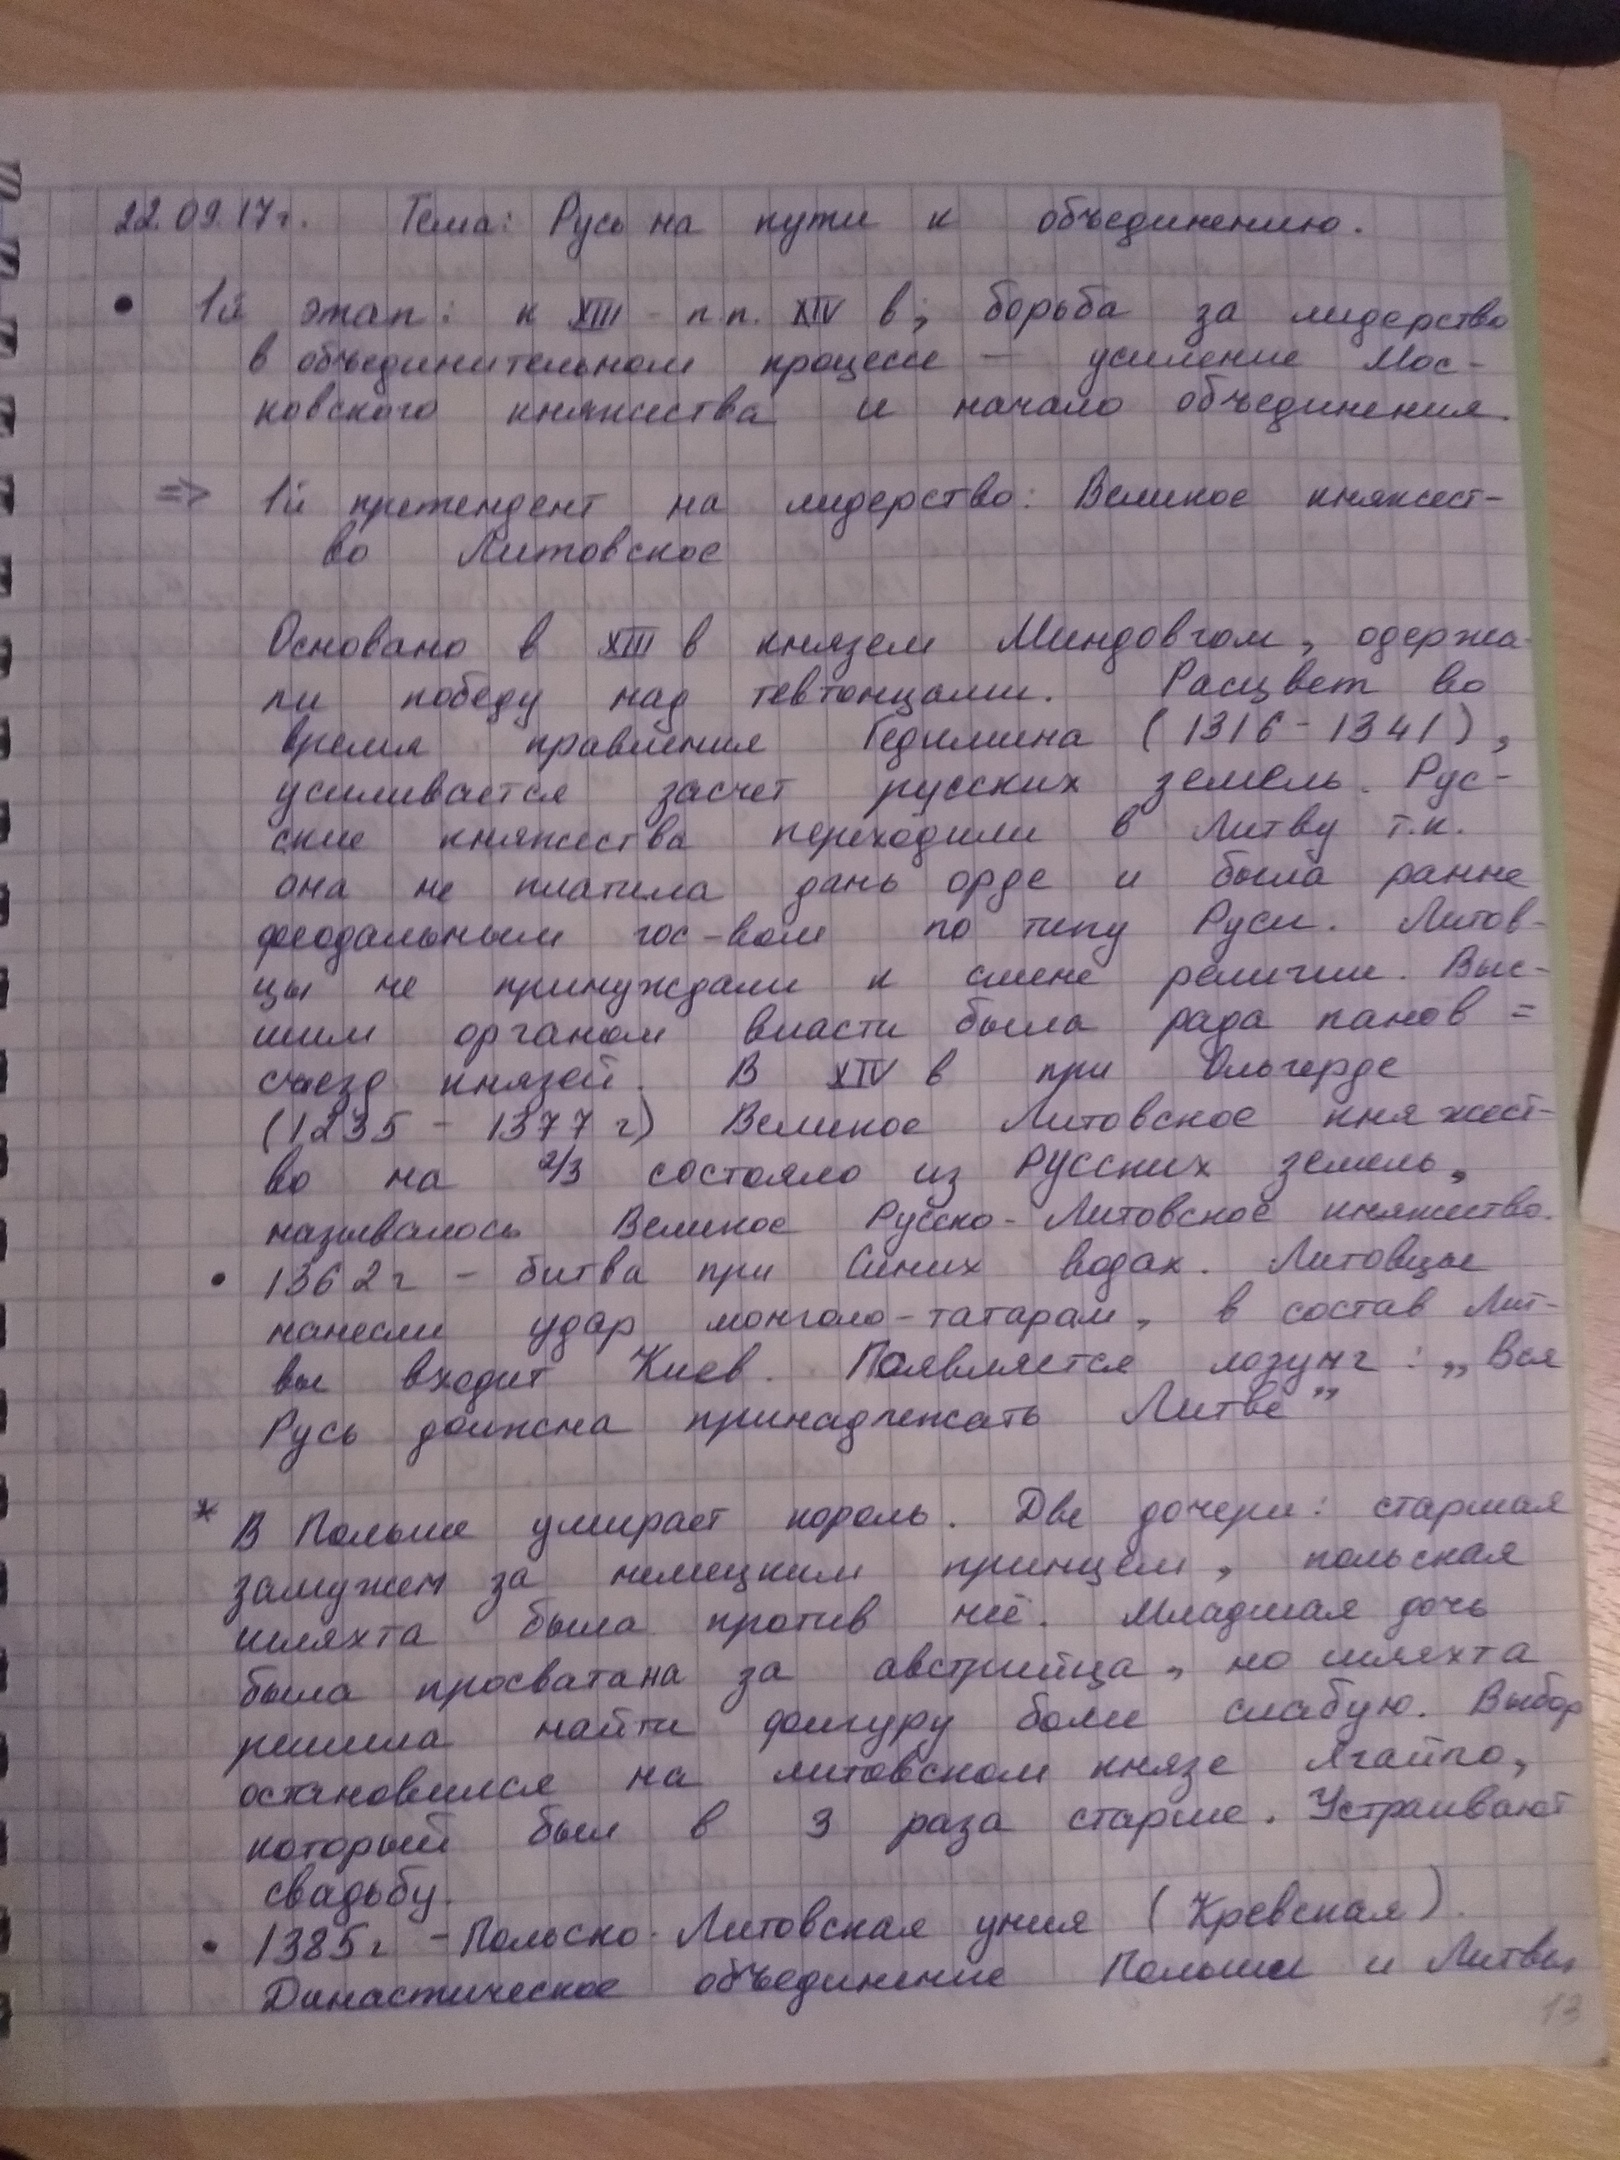 22.09.17г. Тема: Русь на пути к объединению.
• 1й этап: к XIII - п.п. XIV в; борьба за лидерство
в объединительном процессе — усиление Мос-
ковского княжества и начало объединения.
=> 1й претендент на лидерство: Великое княжест-
во Литовское
Основано в XIII в князем Миндовгом, одержа-
ли победу над тевтонцами. Расцвет во
время правления Гедимина (1316 - 1341),
усиливается засчет русских земель. Рус-
ские княжества переходили в Литву т.к.
она не платила дань орде и была ранне
феодальным гос-вом по типу Руси. Литов-
цы не принуждали к смене религии. Выс-
шим органом власти была рада панов =
съезд князей. В XIV в при Ольгерде
(1235 - 1377 г) Великое Литовское княжест-
во на 2/3 состояло из русских земель,
называлось Великое Русско-Литовское княжество.
• 1362г - битва при Синих водах. Литовцы
нанесли удар монголо-татарам, в состав Лит-
вы входит Киев. Появляется лозунг: „Вся
Русь должна принадлежать Литве”
* В Польше умирает король. Две дочери: старшая
замужем за немецким принцем, польская
шляхта была против неё. Младшая дочь
была просватана за австрийца, но шляхта
решила найти фигуру боле слабую. Выбор
остановился на литовском князе Ягайло,
который был в 3 раза старше. Устраивают
свадьбу.
• 1385г - Польско-Литовская уния (Кревская).
Династическое объединение Польши и Литвы,
13